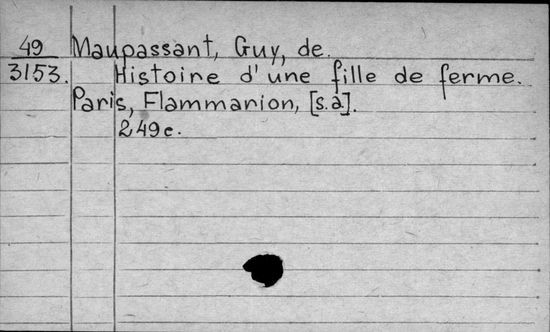 49 Maupassant, Guy, de.
3153. Histoire d'une fille de ferme.
Paris, Flammarion, [s.a].
249c.